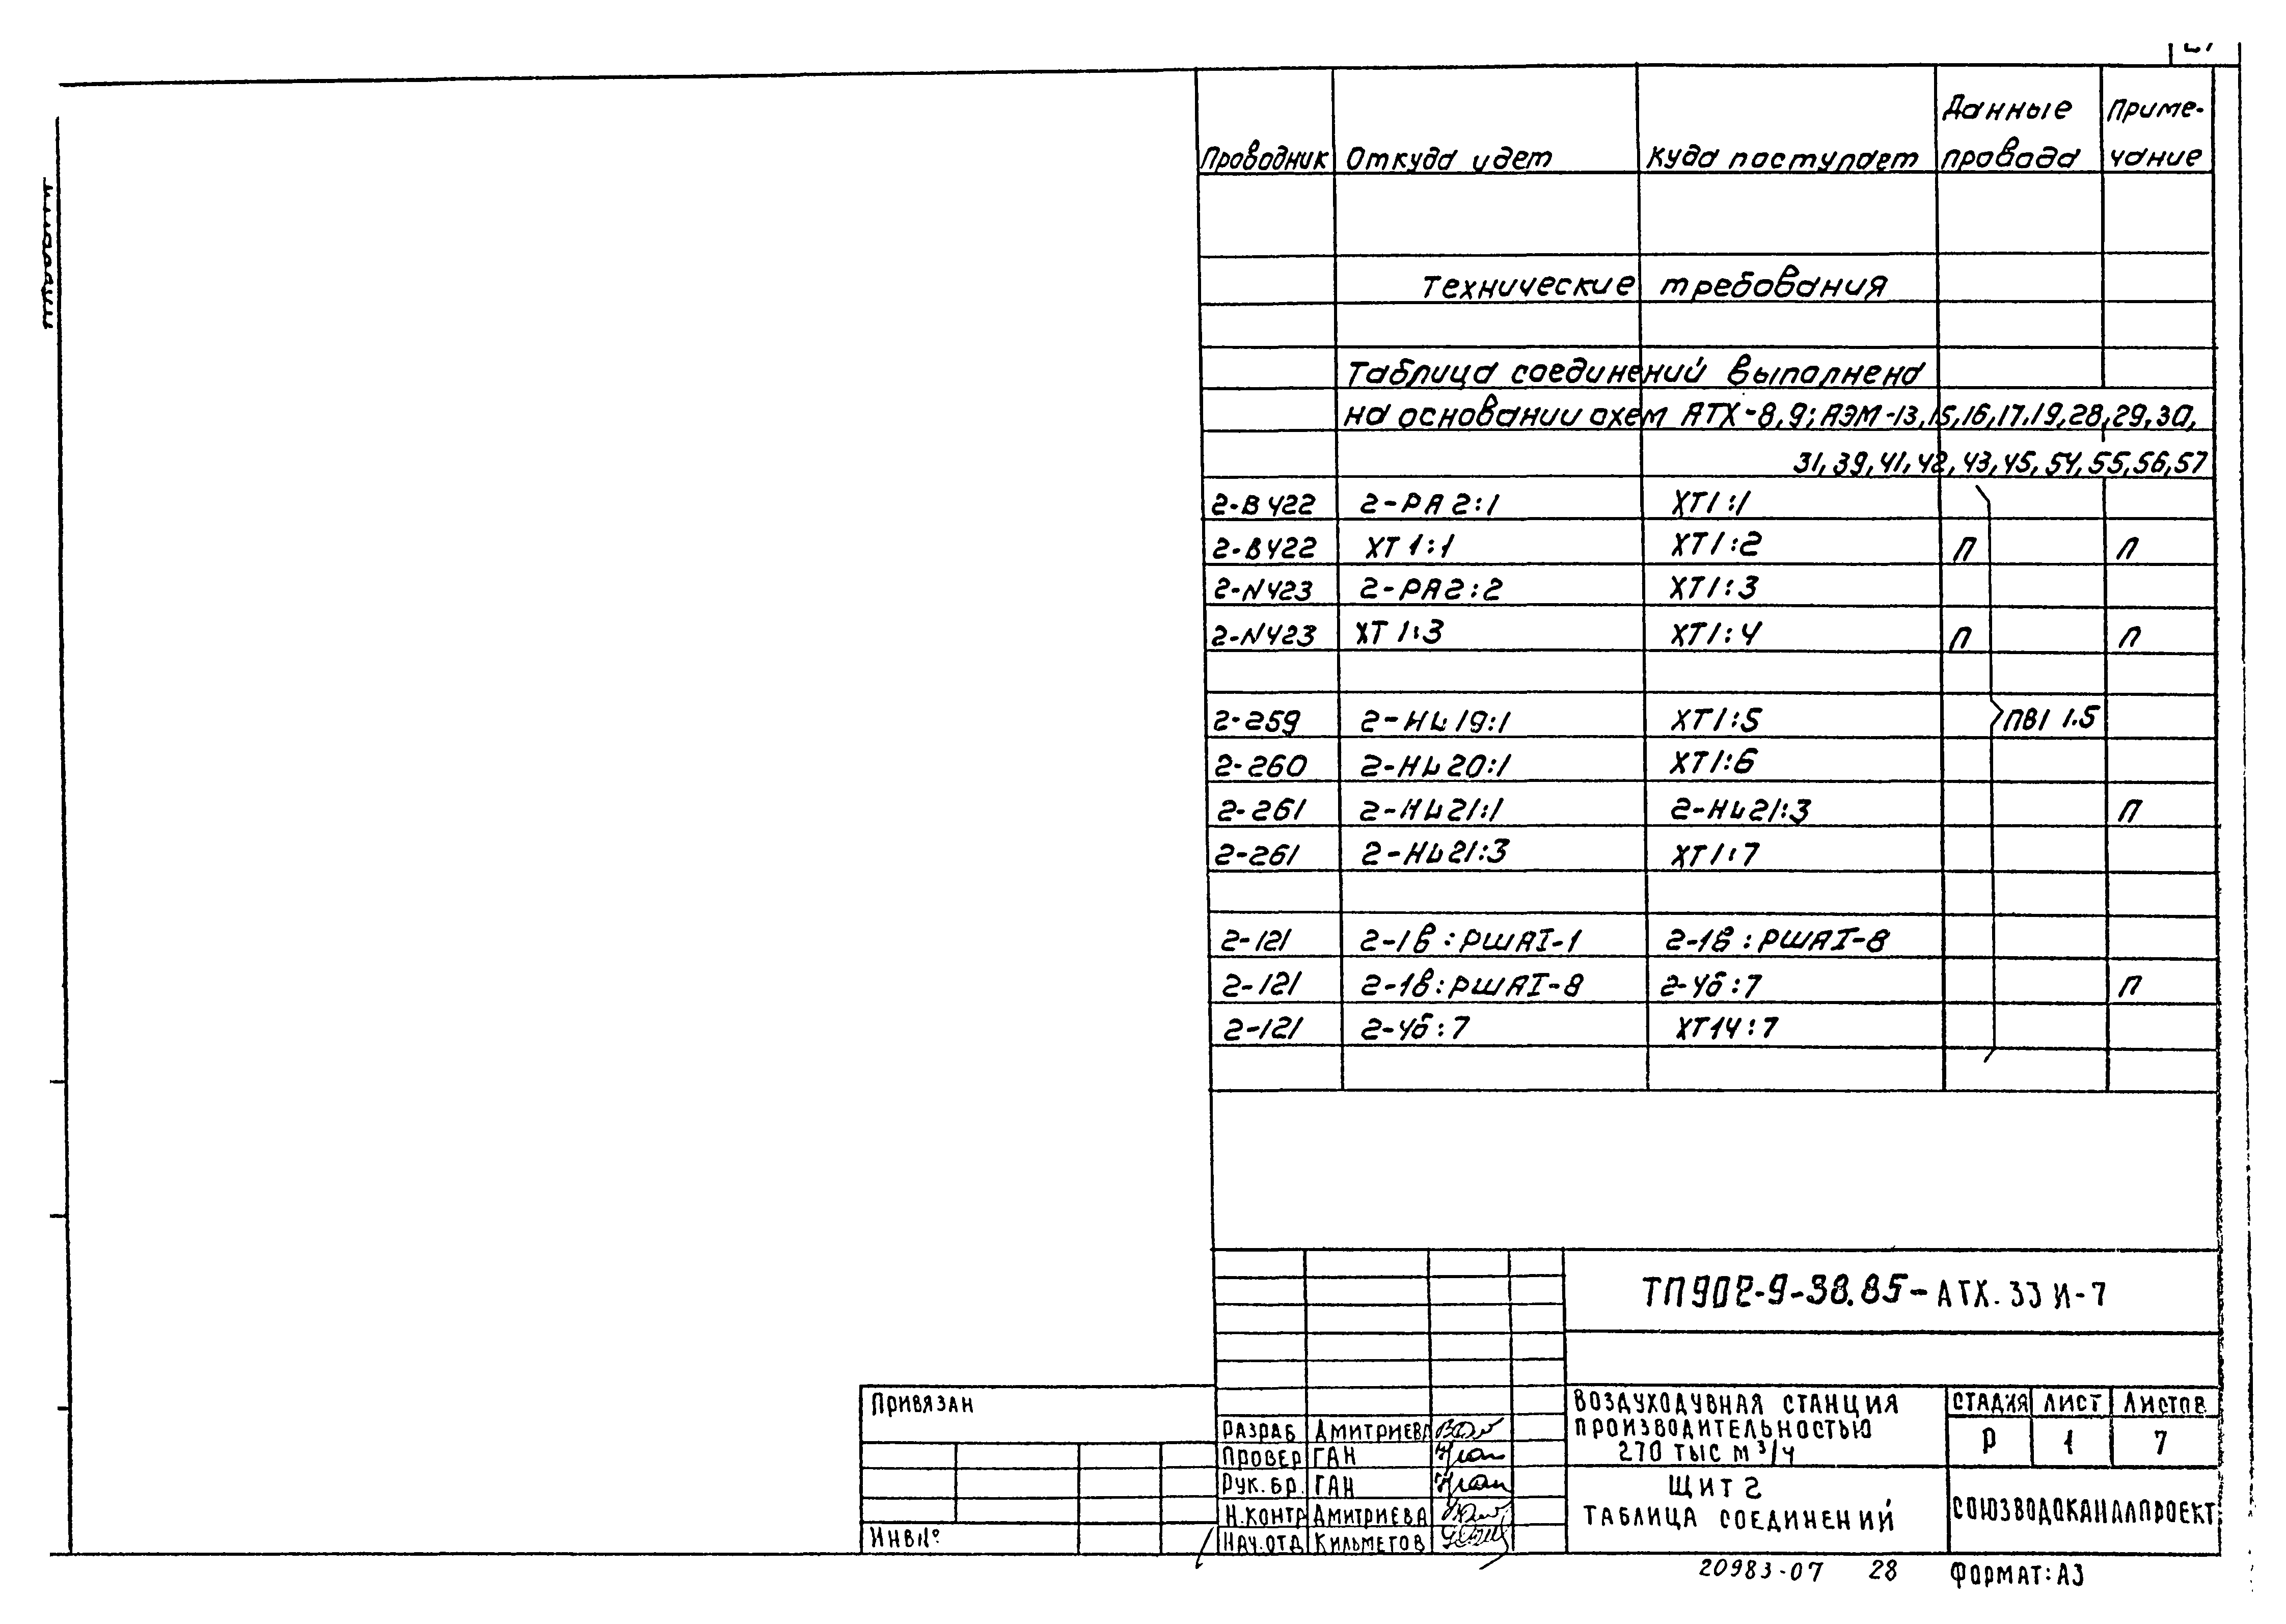 Данные Приме-
Проводник Откуда идет Куда поступает провода чание
Технические требования
Таблица соединений выполнена
на основании схем АТХ-8,9; АЭМ-13,15,16,17,19,28,29,30,
31,39,41,42,43,45,54,55,56,57
2-В422 2-РА2:1 ХТ1:1
2-В422 ХТ1:1 ХТ1:2 П П
2-N423 2-РА2:2 ХТ1:3
2-N423 ХТ1:3 ХТ1:4 П П
2-259 2-HL19:1 ХТ1:5 ПВ1 1.5
2-260 2-HL20:1 ХТ1:6
2-261 2-HL21:1 2-HL21:3 П
2-261 2-HL21:3 ХТ1:7
2-121 2-1в:РШАI-1 2-1в:РШАI-8
2-121 2-1в:РШАI-8 2-4б:7 П
2-121 2-4б:7 ХТ14:7
ТП902-9-38.85-АТХ.33И-7
Привязан
ИНВ№
РАЗРАБ ДМИТРИЕВА
ПРОВЕР ГАН
РУК.БР. ГАН
Н.КОНТР ДМИТРИЕВА
НАЧ.ОТД КИЛЬМЕТОВ
ВОЗДУХОДУВНАЯ СТАНЦИЯ
ПРОИЗВОДИТЕЛЬНОСТЬЮ
270 ТЫС М³/Ч
СТАДИЯ ЛИСТ ЛИСТОВ
Р 1 7
ЩИТ 2
ТАБЛИЦА СОЕДИНЕНИЙ
СОЮЗВОДОКАНАЛПРОЕКТ
20983-07 28 ФОРМАТ:А3